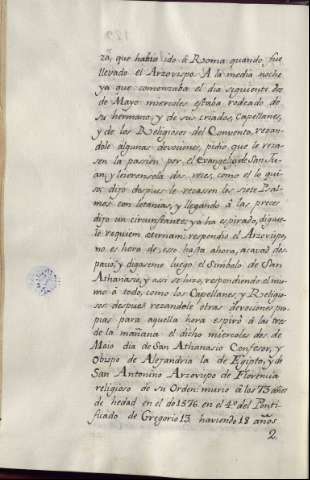 za, que habia ido à Roma quando fue
llevado el Arzovispo. A la media noche
ya que comenzaba el dia siguiente dos
de Mayo miercoles estaba rodeado de
su hermano, y de sus criados, Capellanes,
y de los Religiosos del Convento, rezan-
dole algunas devociones, pidio que le reza-
sen la pasion por el Evangelio de San Jua-
n, y leyeronsela dos veces, como el lo qui-
so; dijo despues le rezasen los siete Psal-
mos con letanias, y llegando à las preces
dijo un circunstante ya ha espirado, digase-
le requiem æternam; respondio el Arzovispo,
no es hora de esso hasta ahora, acavad des-
pacio, y digaseme luego el Simbolo de San
Athanasio, y asi se hizo, respondiendo el mis-
mo à todo, como los Capellanes, y Religio-
sos: despues rezandole otras devosiones pro-
pias para aquella hora espirò à las tres
de la mañana el dicho miercoles dos de
Maio dia de San Athanasio Confesor, y
Obispo de Alejandria la de Egipto, y de
San Antonino Arzovispo de Florencia
religioso de su Orden: murio à los 73 años
de hedad en el de 1576. en el 4º. del Ponti-
ficado de Gregorio 13. haviendo 18 años
2